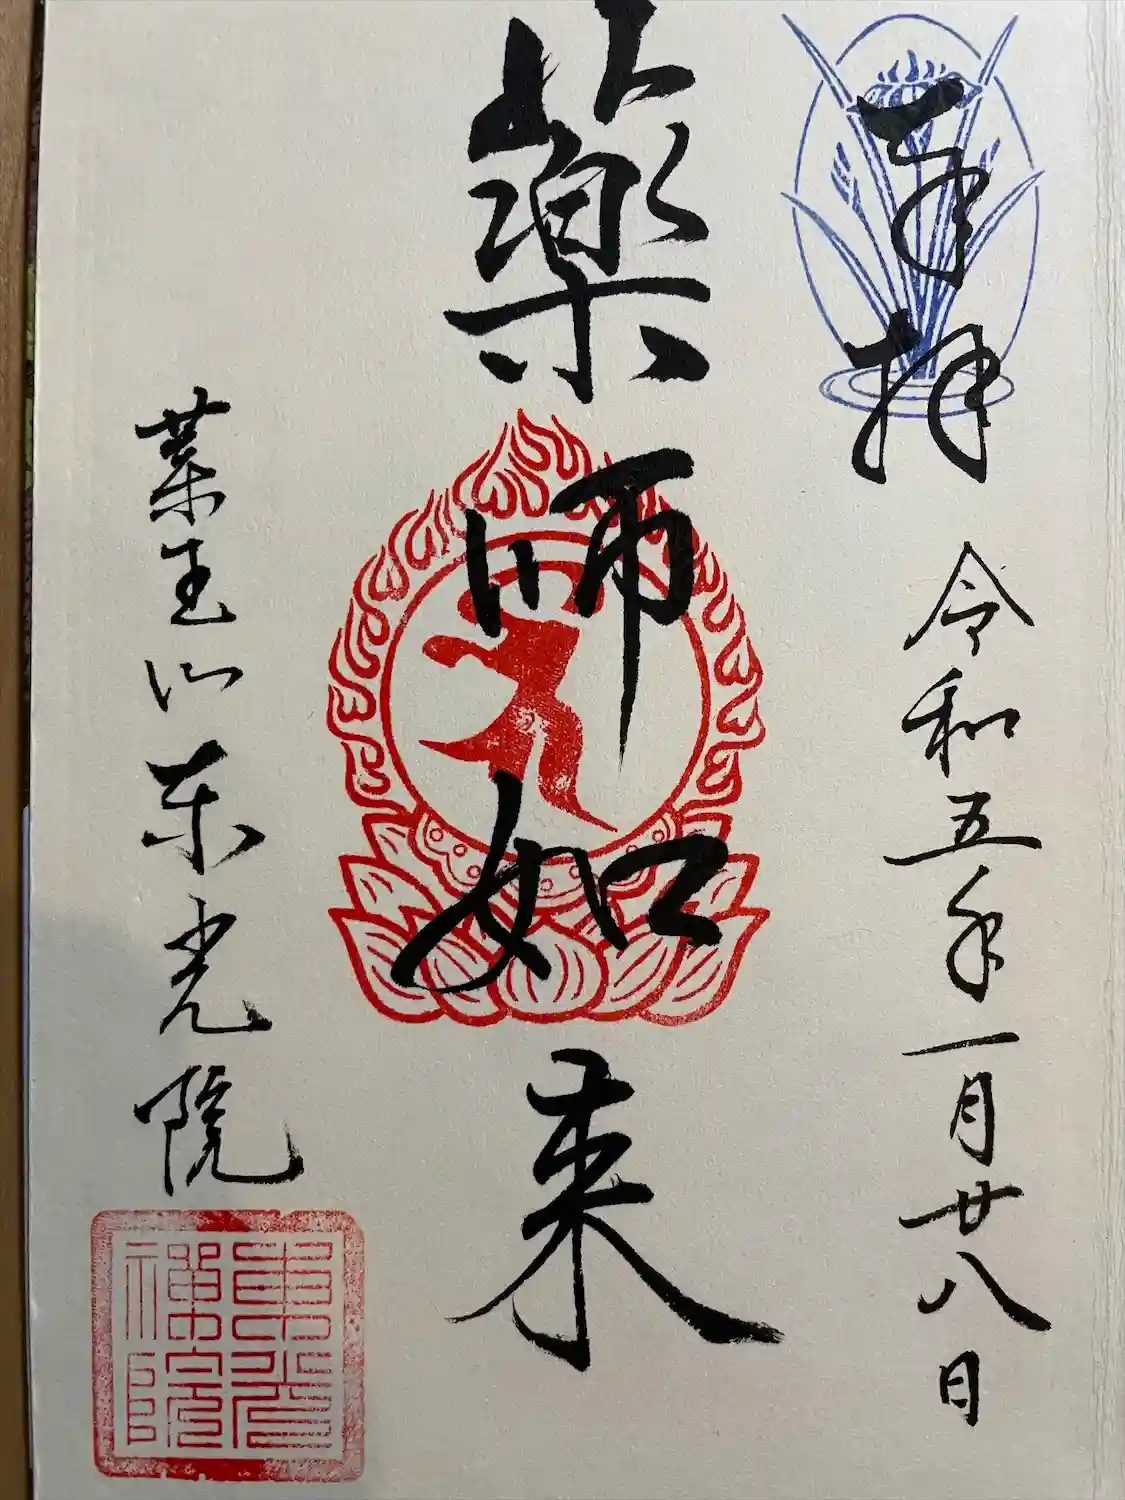 奉拝
令和五年一月廿八日
薬師如来
薬王山東光院
東光禅院